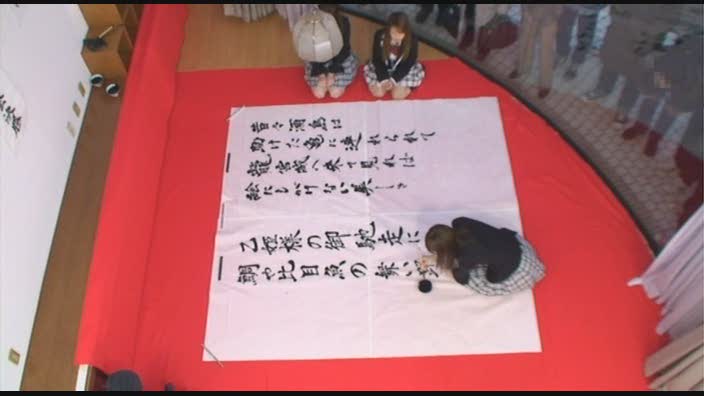 昔々浦島は
助けた亀に連れられて
龍宮城へ来て見れば
絵にもかけない美しさ
乙姫様の御馳走に
鯛や比目魚の舞い